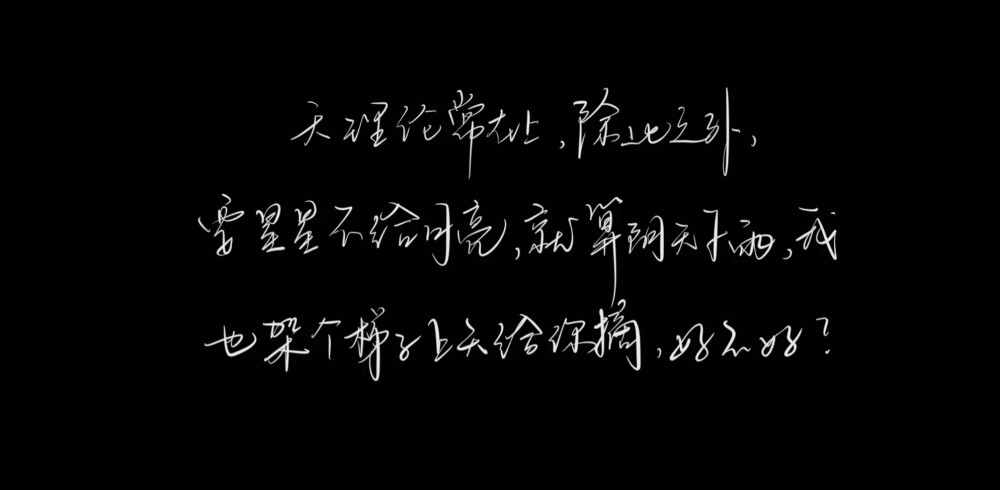 天理伦常在上,除此之外,
要星星不给月亮,就算阴天下雨,我
也架个梯子上天给你摘,好不好?